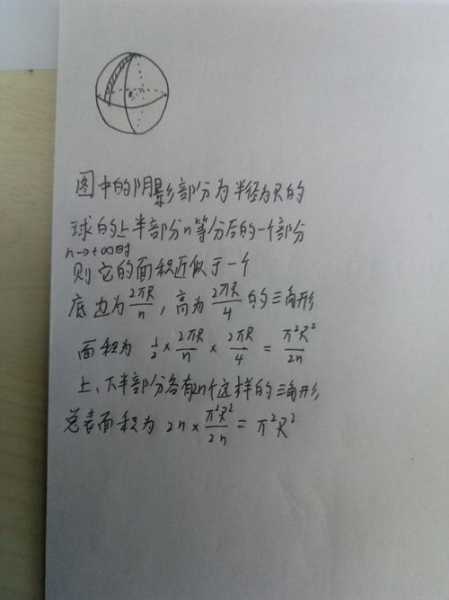 图中的阴影部分为半径为R的
球的上半部分n等分后的一个部分
n→+∞时
则它的面积近似于一个
底边为2πR/n，高为2πR/4的三角形
面积为 1/2×2πR/n×2πR/4=π²R²/2n
上、下半部分各有n个这样的三角形
总表面积为 2n×π²R²/2n=π²R²